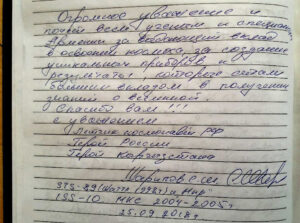 Огромное уважение и
почёт всем учёным и специалистам
Армении за выдающийся вклад
в освоении космоса, за создание
уникальных приборов и
результаты, которые стали
большим вкладом в получении
знаний о вселенной.
Спасибо вам!!!
с уважением
Лётчик космонавт РФ
Герой России
Герой Кыргызстана
Шарипов С.Ш.
STS-89 (Шаттл (1998г) и "Мир"
ISS-10 МКС 2004-2005г
25.09.2018г.